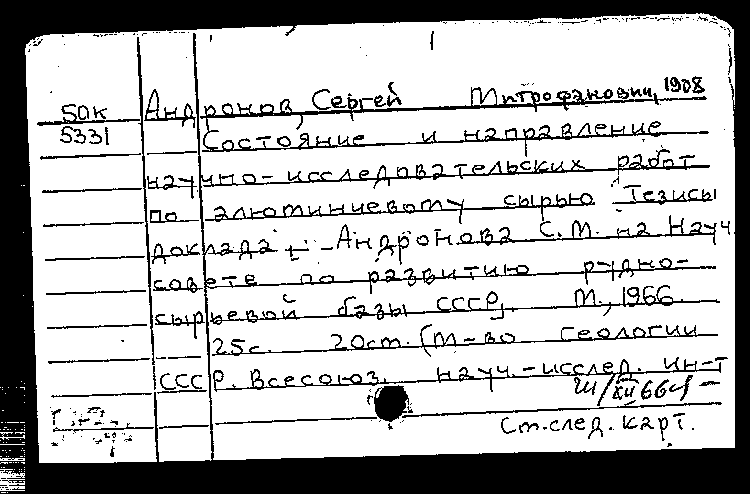 50к Андронов, Сергей Митрофанович, 1908
5331 Состояние и направление
научно-исследовательских работ
по алюминиевому сырью. Тезисы
доклада Андронова С.М. на Науч.
совете по развитию рудно-
сырьевой базы СССР. М., 1966.
25с. 20см. (М-во геологии
СССР. Всесоюз. науч.-исслед. ин-т
Ш/XII 66г
Ст.след.карт.